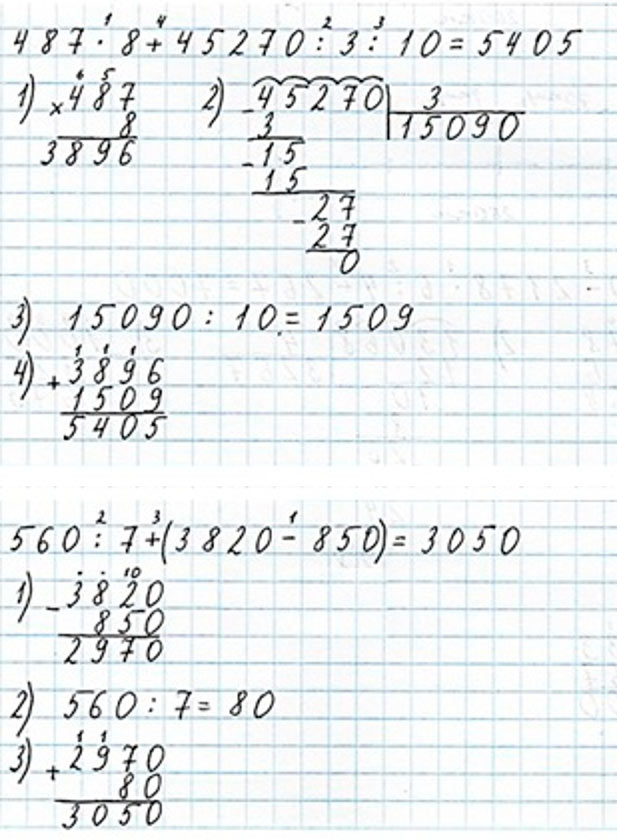 487 · 8 + 45270 : 3 : 10 = 5405
1) × 487
8
3896
2) - 45270 | 3
3 | 15090
- 15
15
- 27
27
0
3) 15090 : 10 = 1509
4) + 3896
1509
5405
560 : 7 + (3820 - 850) = 3050
1) - 3820
850
2970
2) 560 : 7 = 80
3) + 2970
80
3050